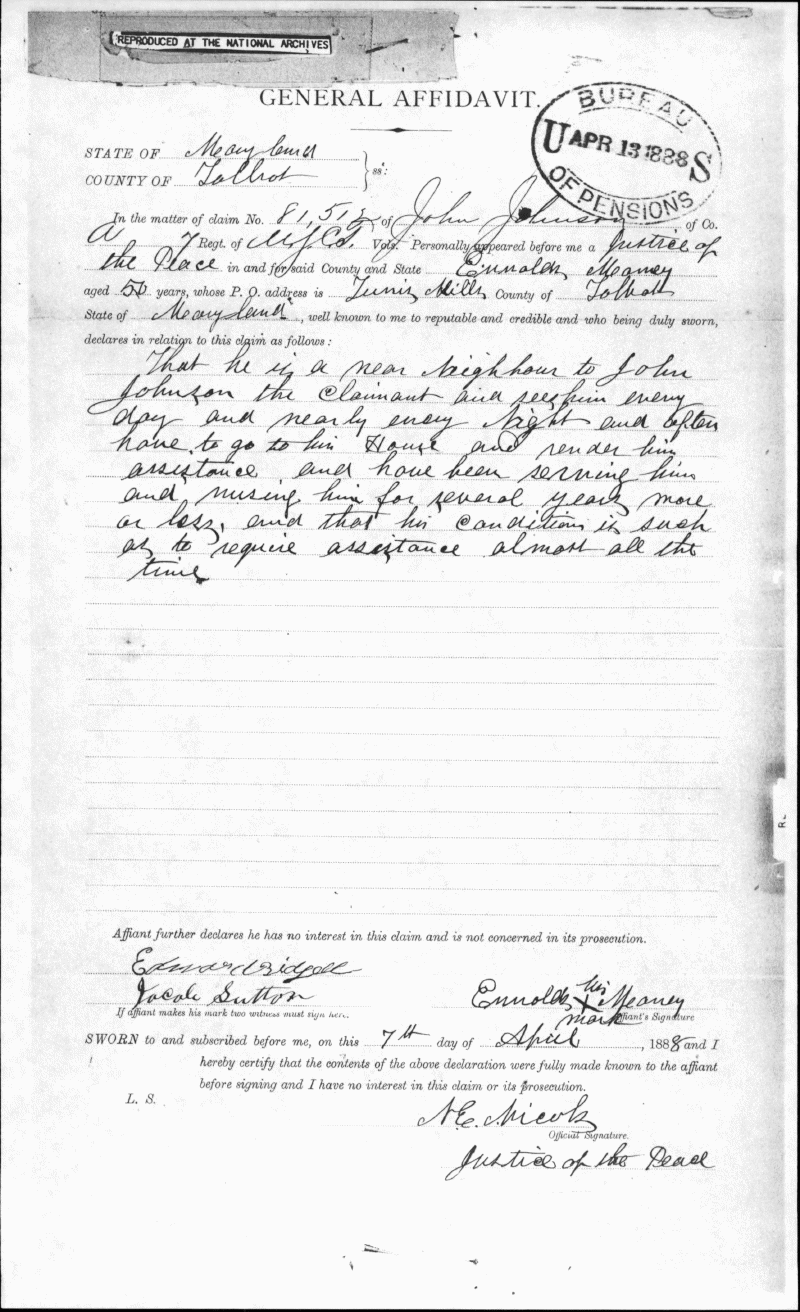 REPRODUCED AT THE NATIONAL ARCHIVES
GENERAL AFFIDAVIT.
BUREAU
U APR 13 1888 S
OF PENSIONS
STATE OF Maryland
COUNTY OF Talbot } ss:
In the matter of claim No. 81,512 of John Johnson of Co.
A 7 Regt. of U.S.C.T. Vols. Personally appeared before me a Justice of
the Peace in and for said County and State Ennolds Meaney
aged 50 years, whose P. O. address is Tunis Mills County of Talbot
State of Maryland, well known to me to reputable and credible and who being duly sworn,
declares in relation to this claim as follows:
That he is a near Neighbour to John
Johnson the Claimant and sees him every
day and nearly every Night and often
have to go to his House and render him
assistance and have been serving him
and nursing him for several years more
or less, and that his condition is such
as to require assistance almost all the
time
Affiant further declares he has no interest in this claim and is not concerned in its prosecution.
Edward Bidgell
Jacob Sutton Ennolds his X mark Meaney
If affiant makes his mark two witness must sign here. Affiant's Signature
SWORN to and subscribed before me, on this 7th day of April, 1888 and I
hereby certify that the contents of the above declaration were fully made known to the affiant
before signing and I have no interest in this claim or its prosecution.
L. S.
N.E. Nicols
Official Signature.
Justice of the Peace